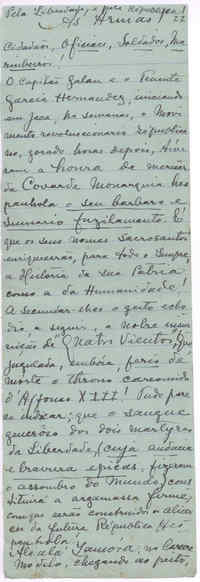 Pela Liberdade, e pela Republica!
Ás Armas! 22
Cidadãos, Officiaes, Soldados, Ma-
rinheiros!
O Capitão Galan e o Tenente
Garcia Hernandez, iniciando
em Jaca, ha semanas, o Movi-
mento revolucionario republica-
no, gorado horas depois, tive-
ram a honra de merecer
da Covarde Monarquia hes-
panhola o seu barbaro e
summario fuzilamento. É
que os seus nomes Sacrosantos
enriquecerão, para todo o Sempre,
a Historia da sua Patria
como a da Humanidade!
A secundar-lhes o gesto echo-
dio, a seguir, a nobre insur-
reição de Quatro Vientos, que
jugulada, embora, feriu de
morte o throno carcomido
d'Affonso XIII! Pude pare-
ce indicar: que o sangue
generoso dos dois martyres
da Liberdade, (cuja audacia
e bravura epicas, fizeram
o assombro do Mundo) cons-
tituirá a argamassa firme,
com que serão construidos os alicer-
ces da futura Republica Hes-
panhola!
Alcalá Zamora, no Carcere
Modelo, chegando ao peito,